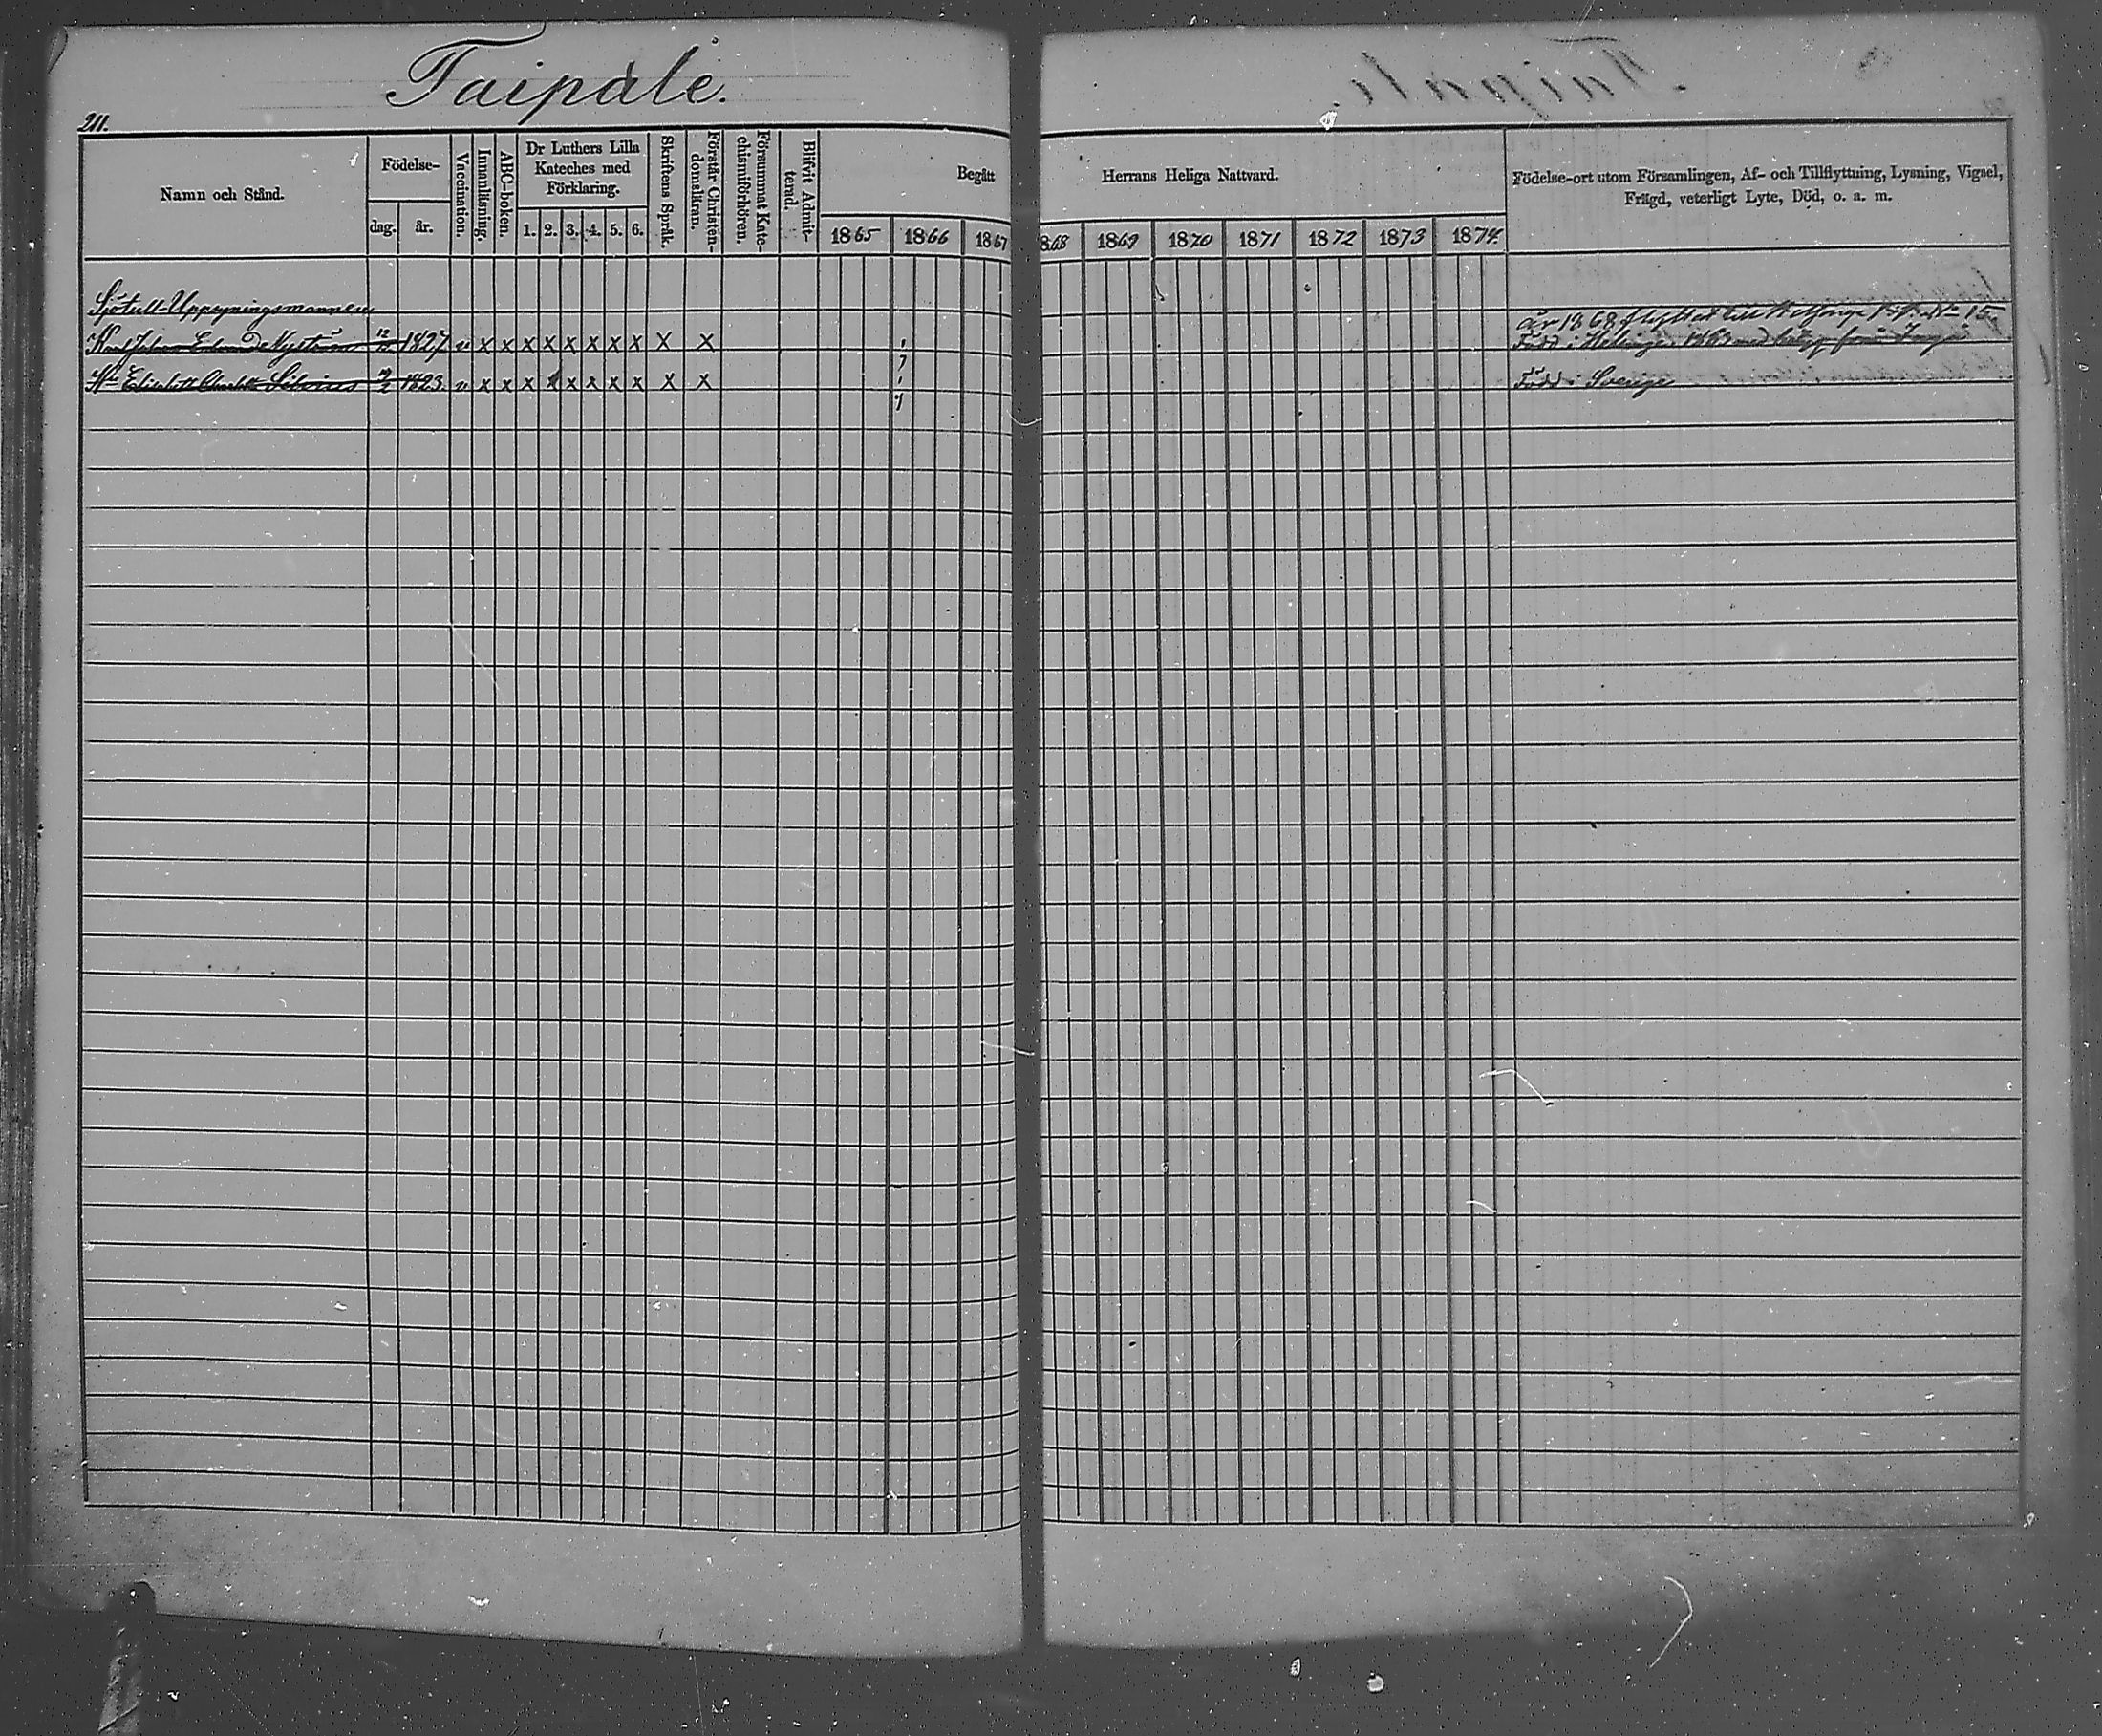 Taipale.
211.
Namn och Stånd.
Födelse-
dag.
år.
Vaccination.
Innanläsning.
ABC-boken.
Dr Luthers Lilla
Kateches med
Förklaring.
1. 2. 3. 4. 5. 6.
Skriftens Språk.
Förstår Christen-
domsläran.
Försummat Kate-
chismiförhören.
Blifvit Admit-
terad.
Begått
Herrans Heliga Nattvard.
1865 1866 1867 1868 1869 1870 1871 1872 1873 1874
Födelse-ort utom Församlingen, Af- och Tillflyttning, Lysning, Vigsel,
Frägd, veterligt Lyte, Död, o. a. m.
Sjötull-Uppsyningsmannen
år 1868 flyttad till No 15
Karl Johan Edvard Nyström 1827 " x x x x x x x x x x
Född i 1863 med betyg från Ingå
Elisabeth 1823 " x x x x x x x x x x
Född i Sverige